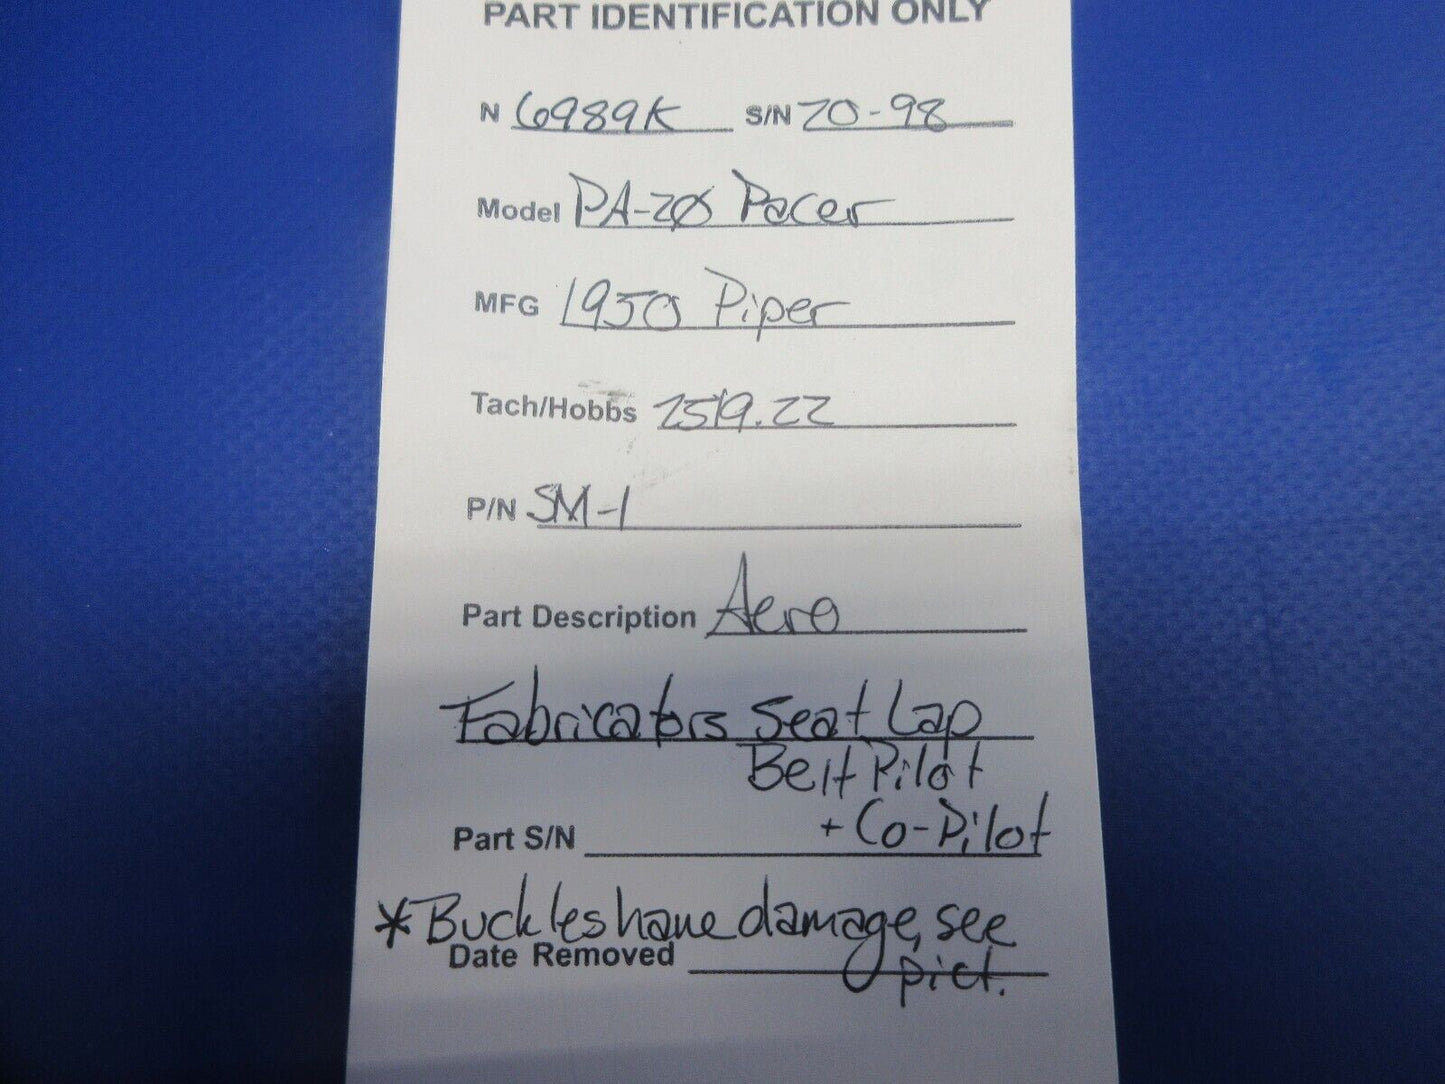 PART IDENTIFICATION ONLY
N 6989K S/N 20-98
Model PA-20 Pacer
MFG 1950 Piper
Tach/Hobbs 2519.22
P/N SM-1
Part Description Aero
Fabricators Seat Lap
Belt Pilot
+ Co-Pilot
Part S/N
*Buckles have damage, see
Date Removed
pict.